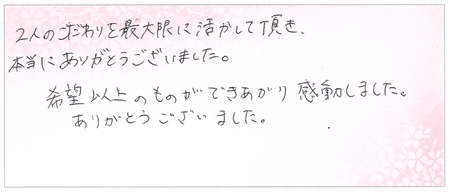 2人のこだわりを最大限に活かして頂き、
本当にありがとうございました。
希望以上のものができあがり感動しました。
ありがとうございました。